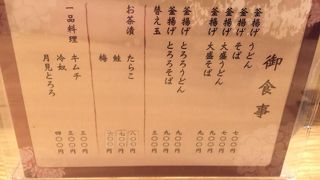 御食事
釜揚げうどん 七〇〇円
釜揚げそば 七〇〇円
釜揚げ大盛うどん 九〇〇円
釜揚げ大盛そば 九〇〇円
釜揚げとろろうどん 九〇〇円
釜揚げとろろそば 九〇〇円
替え玉 三〇〇円
お茶漬
たらこ 八〇〇円
鮭 七〇〇円
梅 六〇〇円
一品料理
キムチ 三〇〇円
冷奴 三〇〇円
月見とろろ 四〇〇円